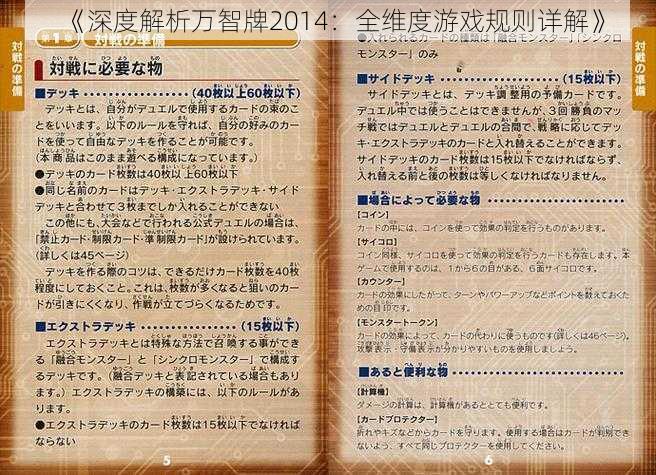 《深度解析万智牌2014：全维度游戏规则详解》
第1章 対戦の準備
対戦の準備
対戦に必要な物
■デッキ ……………………(40枚以上60枚以下)
デッキとは、自分がデュエルで使用するカードの束のこ
とをいいます。以下のルールを守れば、自分の好みのカー
ドを使って自由なデッキを作ることが可能です。
(本商品はこのまま遊べる構成になっています。)
●デッキのカード枚数は40枚以上60枚以下
●同じ名前のカードはデッキ・エクストラデッキ・サイド
デッキと合わせて3枚までしか入れることができない
この他にも、大会などで行われる公式デュエルの場合は、
「禁止カード・制限カード・準制限カード」が設けられています。
(詳しくは45ページ)
デッキを作る際のコツは、できるだけカード枚数を40枚
程度にしておくこと。これは、枚数が多くなると狙いのカー
ドが引きにくくなり、作戦が立てづらくなるためです。
■エクストラデッキ ……………………(15枚以下)
エクストラデッキとは特殊な方法で召喚する事ができ
る「融合モンスター」と「シンクロモンスター」で構成す
るデッキです。(融合デッキと表記されている場合もあり
ます。)エクストラデッキの構築には、以下のルールがあ
ります。
●エクストラデッキのカード枚数は15枚以下でなければ
ならない
5
●入れられるカードの種類は「融合モンスター」「シンクロ
モンスター」のみ
■サイドデッキ ……………………(15枚以下)
サイドデッキとは、デッキ調整用の予備カードです。
デュエル中では使うことはできませんが、3回勝負のマッ
チ戦ではデュエルとデュエルの合間で、戦略に応じてデッ
キ・エクストラデッキのカードと入れ替えることができます。
サイドデッキのカード枚数は15枚以下でなければならず、
入れ替える前と後の枚数は等しくなければなりません。
■場合によって必要な物 ……………………
【コイン】
カードの中には、コインを使って効果の判定を行うものがあります。
【サイコロ】
コイン同様、サイコロを使って効果の判定を行うカードも存在します。本
ゲームで使用するのは、1から6の目がある、6面サイコロです。
【カウンター】
カードの効果にしたがって、ターンやパワーアップなどポイントを数えておくた
めの目印です。
【モンスタートークン】
カードの効果によって、カードの代わりに使うものです(詳しくは46ページ)。
攻撃表示・守備表示が分かりやすいものを用意しましょう。
■あると便利な物 ……………………
【計算機】
ダメージの計算は、計算機があるととても便利です。
【カードプロテクター】
折れやキズなどからカードを守ります。使用する場合はカードが判別でき
ないよう、すべて同じプロテクターを使用してください。
6
対戦の準備